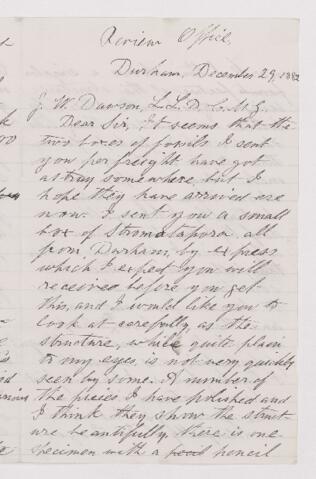 Review Office,
Durham, December 29, 1882
J. W. Dawson, L.L.D. C.M.G.
Dear Sir, It seems that the
two boxes of fossils I sent
you per freight have got
astray somewhere, but I
hope they have arrived ere
now. I sent you a small
box of Stromatapora all
from Durham, by express
which I expect you will
received before you get
this, and I would like you to
look at carefully as the
structure, while quite plain
to my eyes, is not very quickly
seen by some. A number of
the pieces I have polished and
I think they show the struct-
ure beautifully, there is one
specimen with a pencil